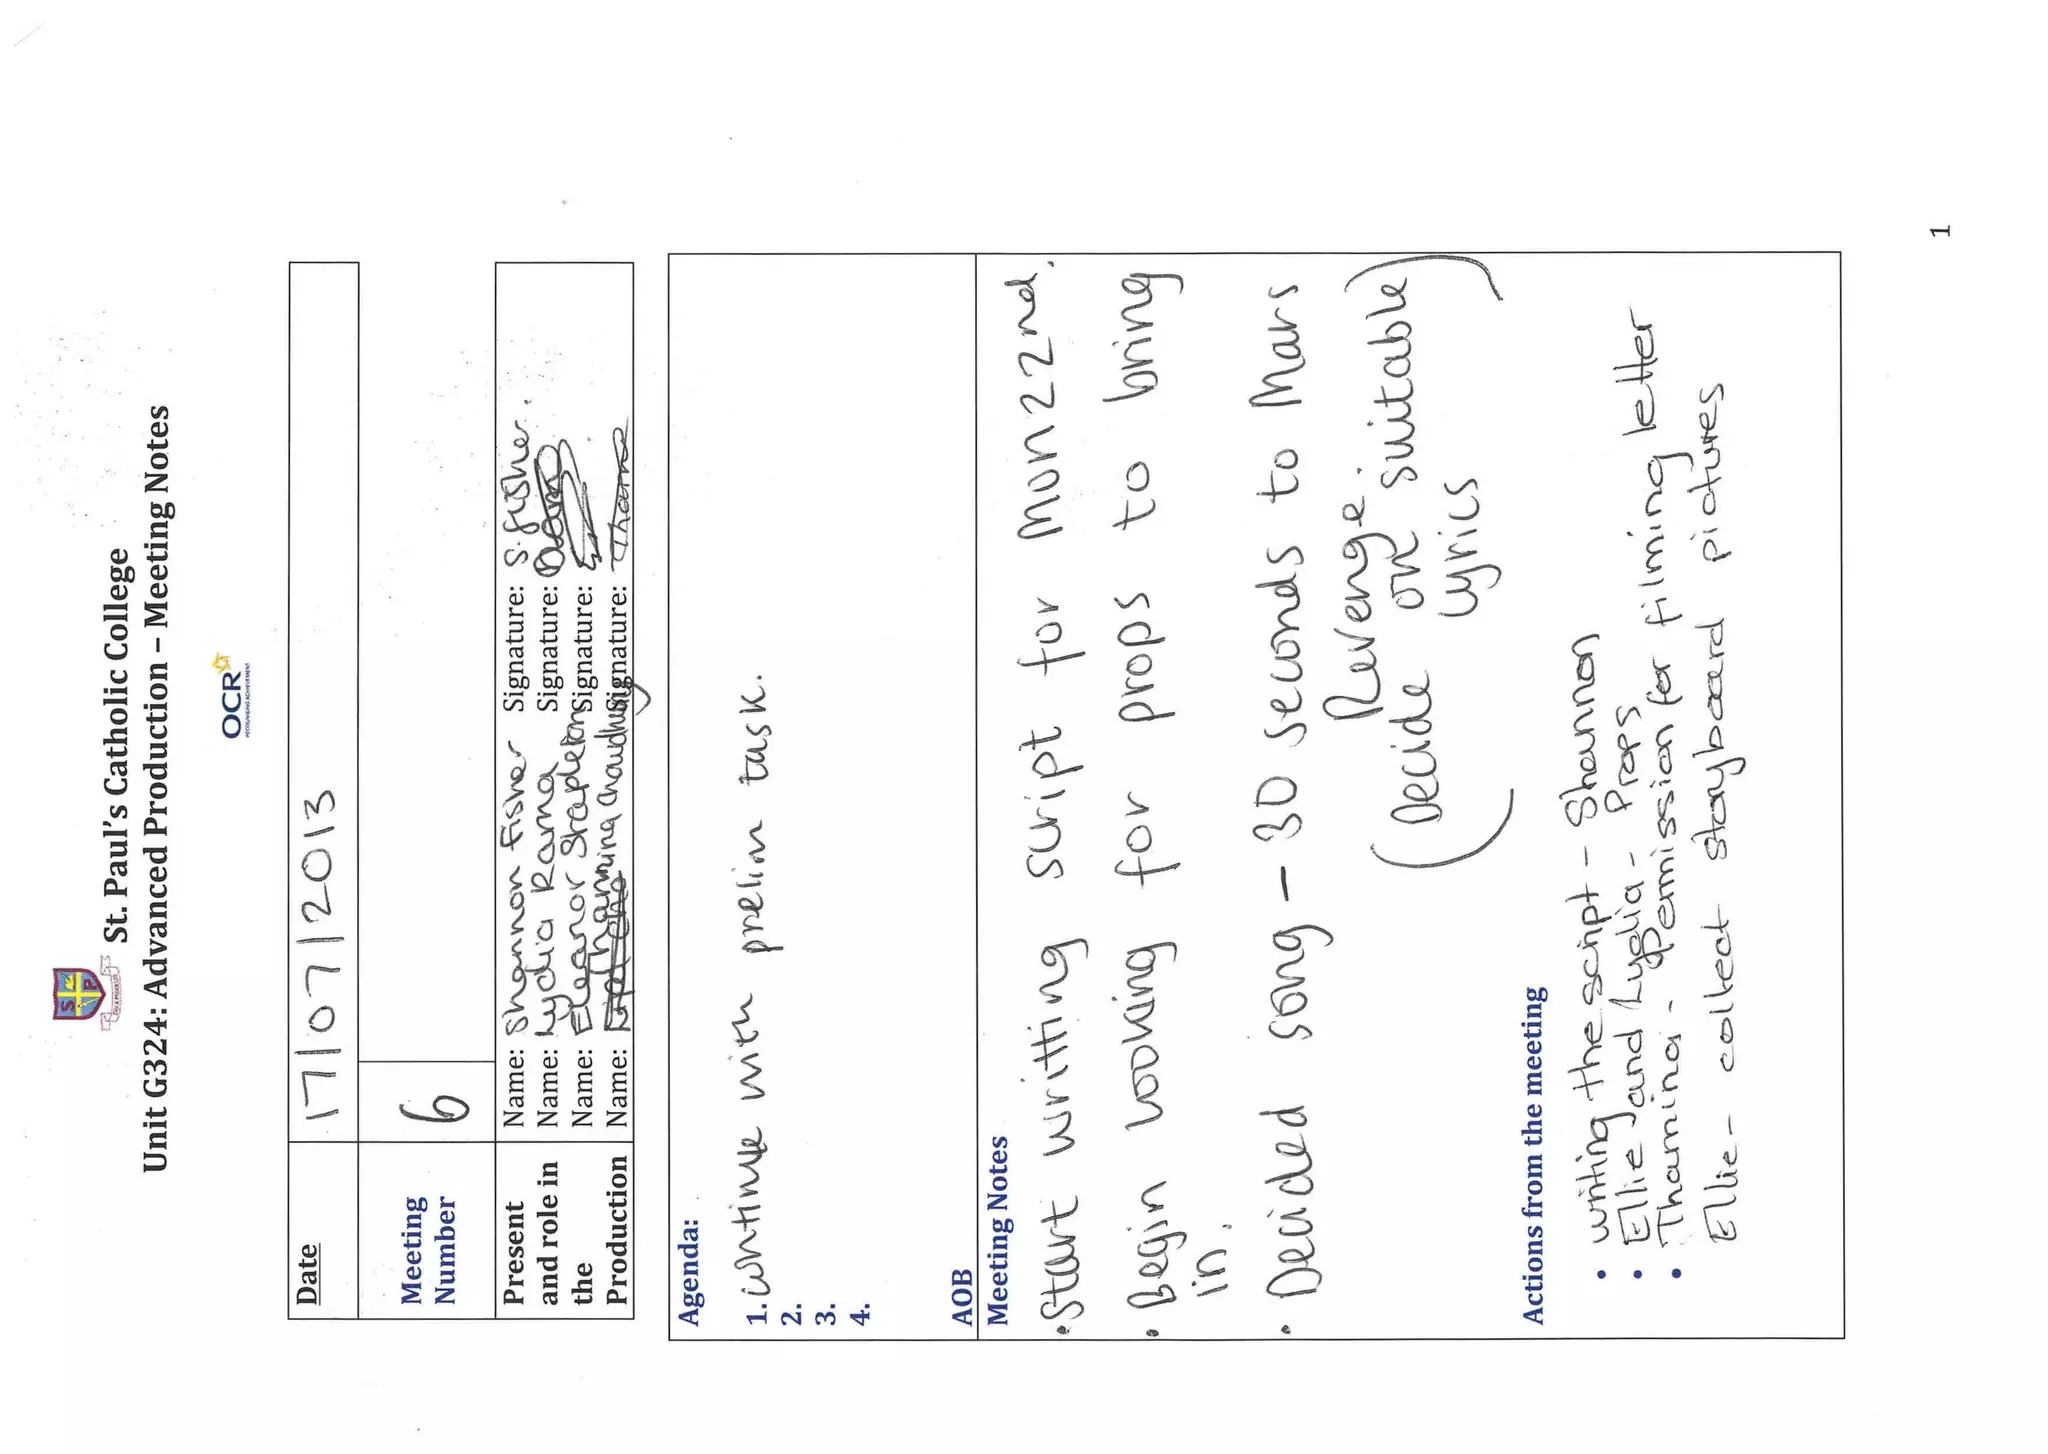 St. Paul's Catholic College
Unit G324: Advanced Production – Meeting Notes
OCR
RECOGNISING ACHIEVEMENT
Date 17/07/2013
Meeting Number 6
Present and role in the Production
Name: Shannon Fisher Signature: S.fisher.
Name: Lydia Rama Signature:
Name: Eleanor Stapleton Signature:
Name: Thamina Chaudhury Signature: Thamina
Agenda:
1. continue with prelim task.
2.
3.
4.
AOB
Meeting Notes
• Start writting script for Mon 22nd.
• Begin looking for props to bring
in.
• Decided song - 30 seconds to Mars
Revenge.
(Decide on suitable)
lyrics
Actions from the meeting
• writing the script - Shannon
• Ellie and Lydia - Props
• Thamina - Permission for filming letter
Ellie - collect storyboard pictures
1